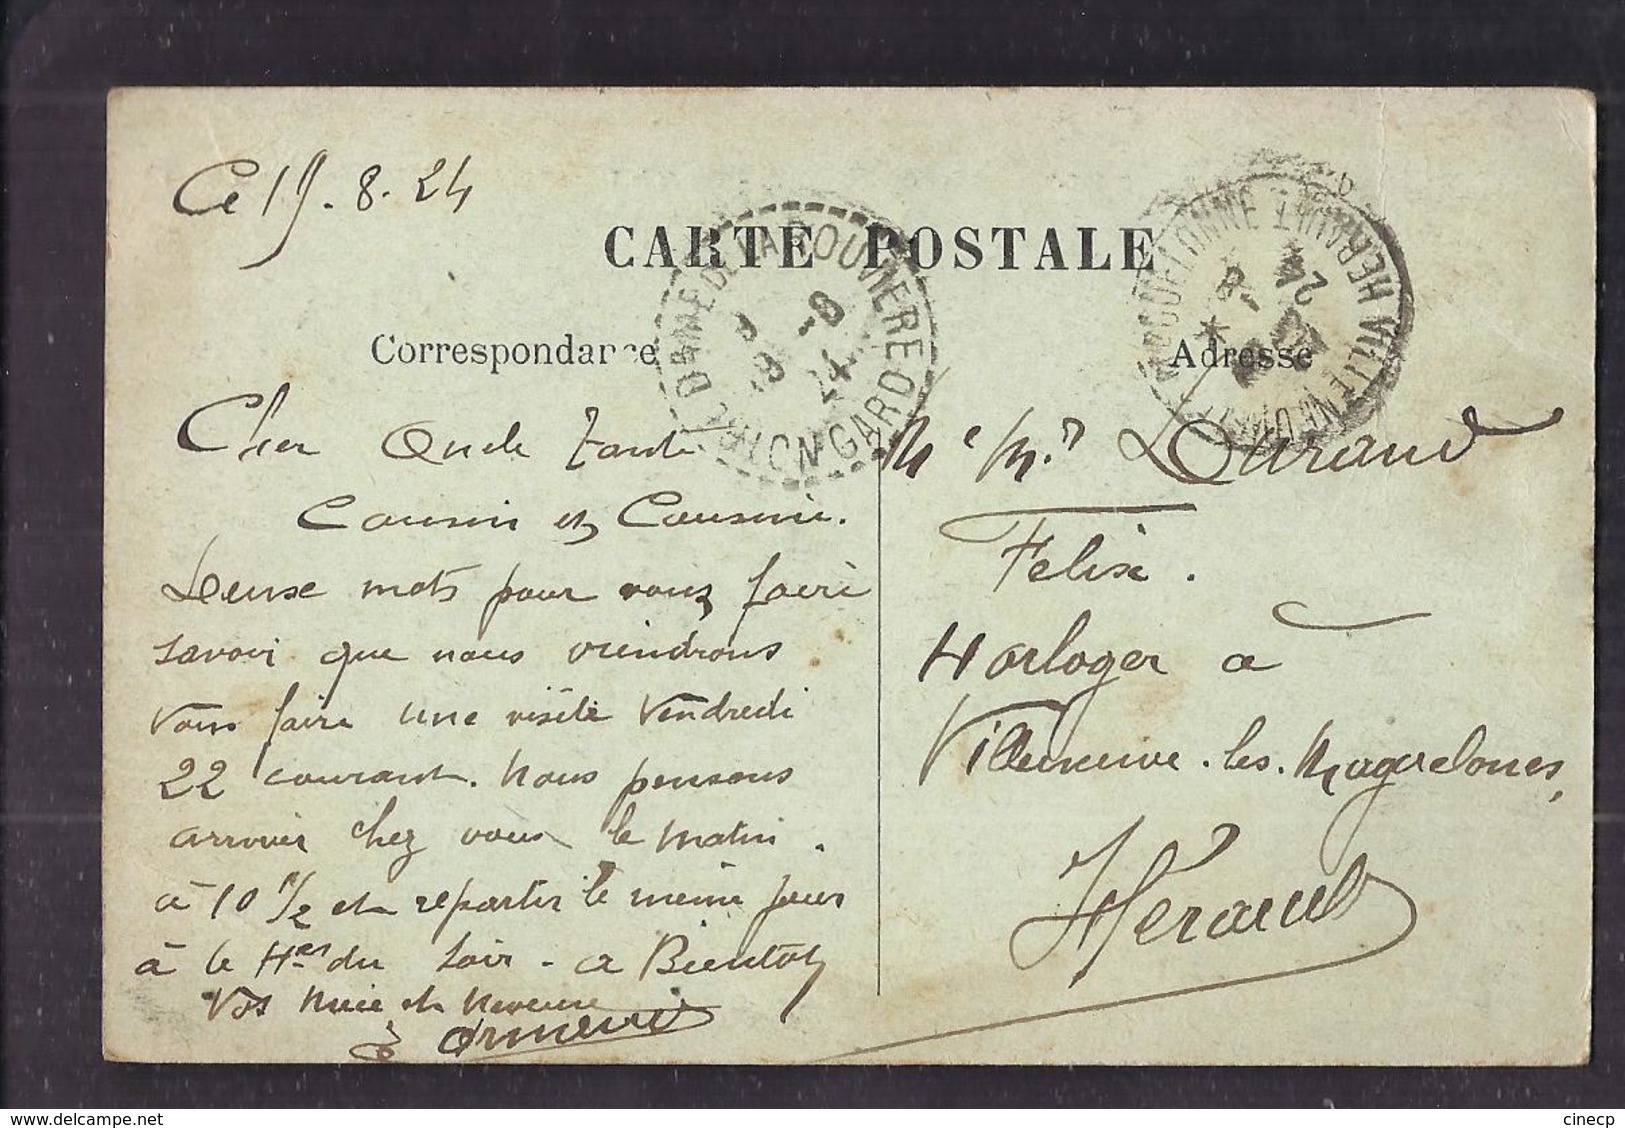 Ce 19.8.24
CARTE POSTALE
Correspondance
Adresse
NE DAME DE LA ROUVIERE GARD
VILLENEUVE HERAULT
Cher Oncle Tante
Cousin et Cousine.
Deuse mots pour vous faire
savoir que nous viendrons
vous faire une visite Vendredi
22 courant. Nous pensons
arriver chez vous le matin.
à 10 1/2 et repartir le même jour
à 6 Hres du soir - a Bientot
Vos Niece et Neveux
M e Mr Durand
Felix.
Horloger a
Villeneuve. les. Magdelones,
Hérault
cinecp